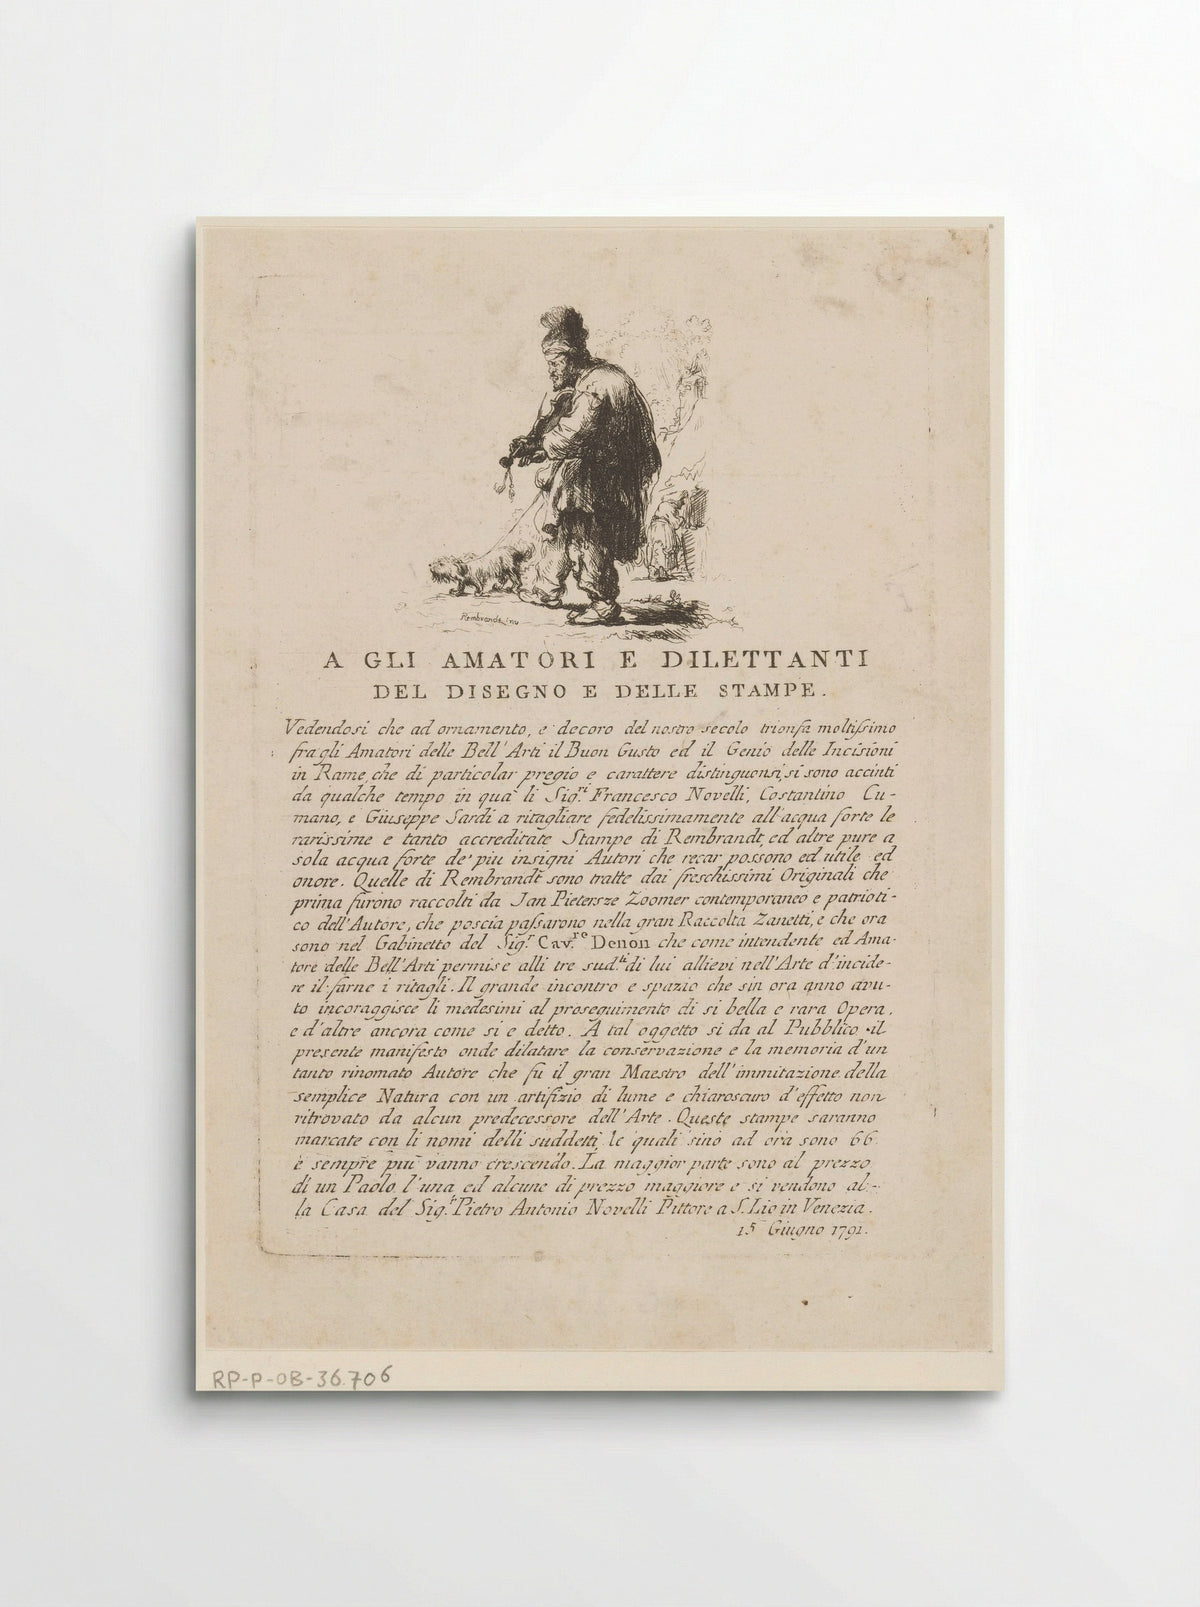 Rembrandt inv
A GLI AMATORI E DILETTANTI
DEL DISEGNO E DELLE STAMPE.
Vedendosi che ad ornamento, e decoro del nostro secolo trionfa moltissimo
fra gli Amatori delle Bell'Arti il Buon Gusto ed il Genio delle Incisioni
in Rame, che di particolar pregio e carattere distinguonsi, si sono accinti
da qualche tempo in qua li Sig.ri Francesco Novelli, Costantino Cu-
mano, e Giuseppe Sardi a ritagliare fedelissimamente all'acqua forte le
rarissime e tanto accreditate Stampe di Rembrandt, ed altre pure a
sola acqua forte de' piu insigni Autori che recar possono ed utile ed
onore. Quelle di Rembrandt sono tratte dai freschissimi Originali che
prima furono raccolti da Jan Pietersze Zoomer contemporaneo e patrioti-
co dell'Autore, che poscia passarono nella gran Raccolta Zanetti, e che ora
sono nel Gabinetto del Sig.r Cav.re Denon che come intendente ed Ama-
tore delle Bell'Arti permise alli tre sud.ti di lui allievi nell'Arte d'incide-
re il farne i ritagli. Il grande incontro e spazio che sin ora anno avu-
to incoraggisce li medesimi al proseguimento di si bella e rara Opera,
e d'altre ancora come si e detto. A tal oggetto si da al Pubblico il
presente manifesto onde dilatare la conservazione e la memoria d'un
tanto rinomato Autore che fu il gran Maestro dell'immitazione della
semplice Natura con un artifizio di lume e chiaroscuro d'effetto non
ritrovato da alcun predecessore dell'Arte. Queste stampe saranno
marcate con li nomi delli suddetti le quali sino ad ora sono 66
e sempre piu vanno crescendo. La maggior parte sono al prezzo
di un Paolo l'una ed alcune di prezzo maggiore e si vendono al-
la Casa del Sig.r Pietro Antonio Novelli Pittore a S. Lio in Venezia.
15 Giugno 1791.
RP-P-OB-36.706